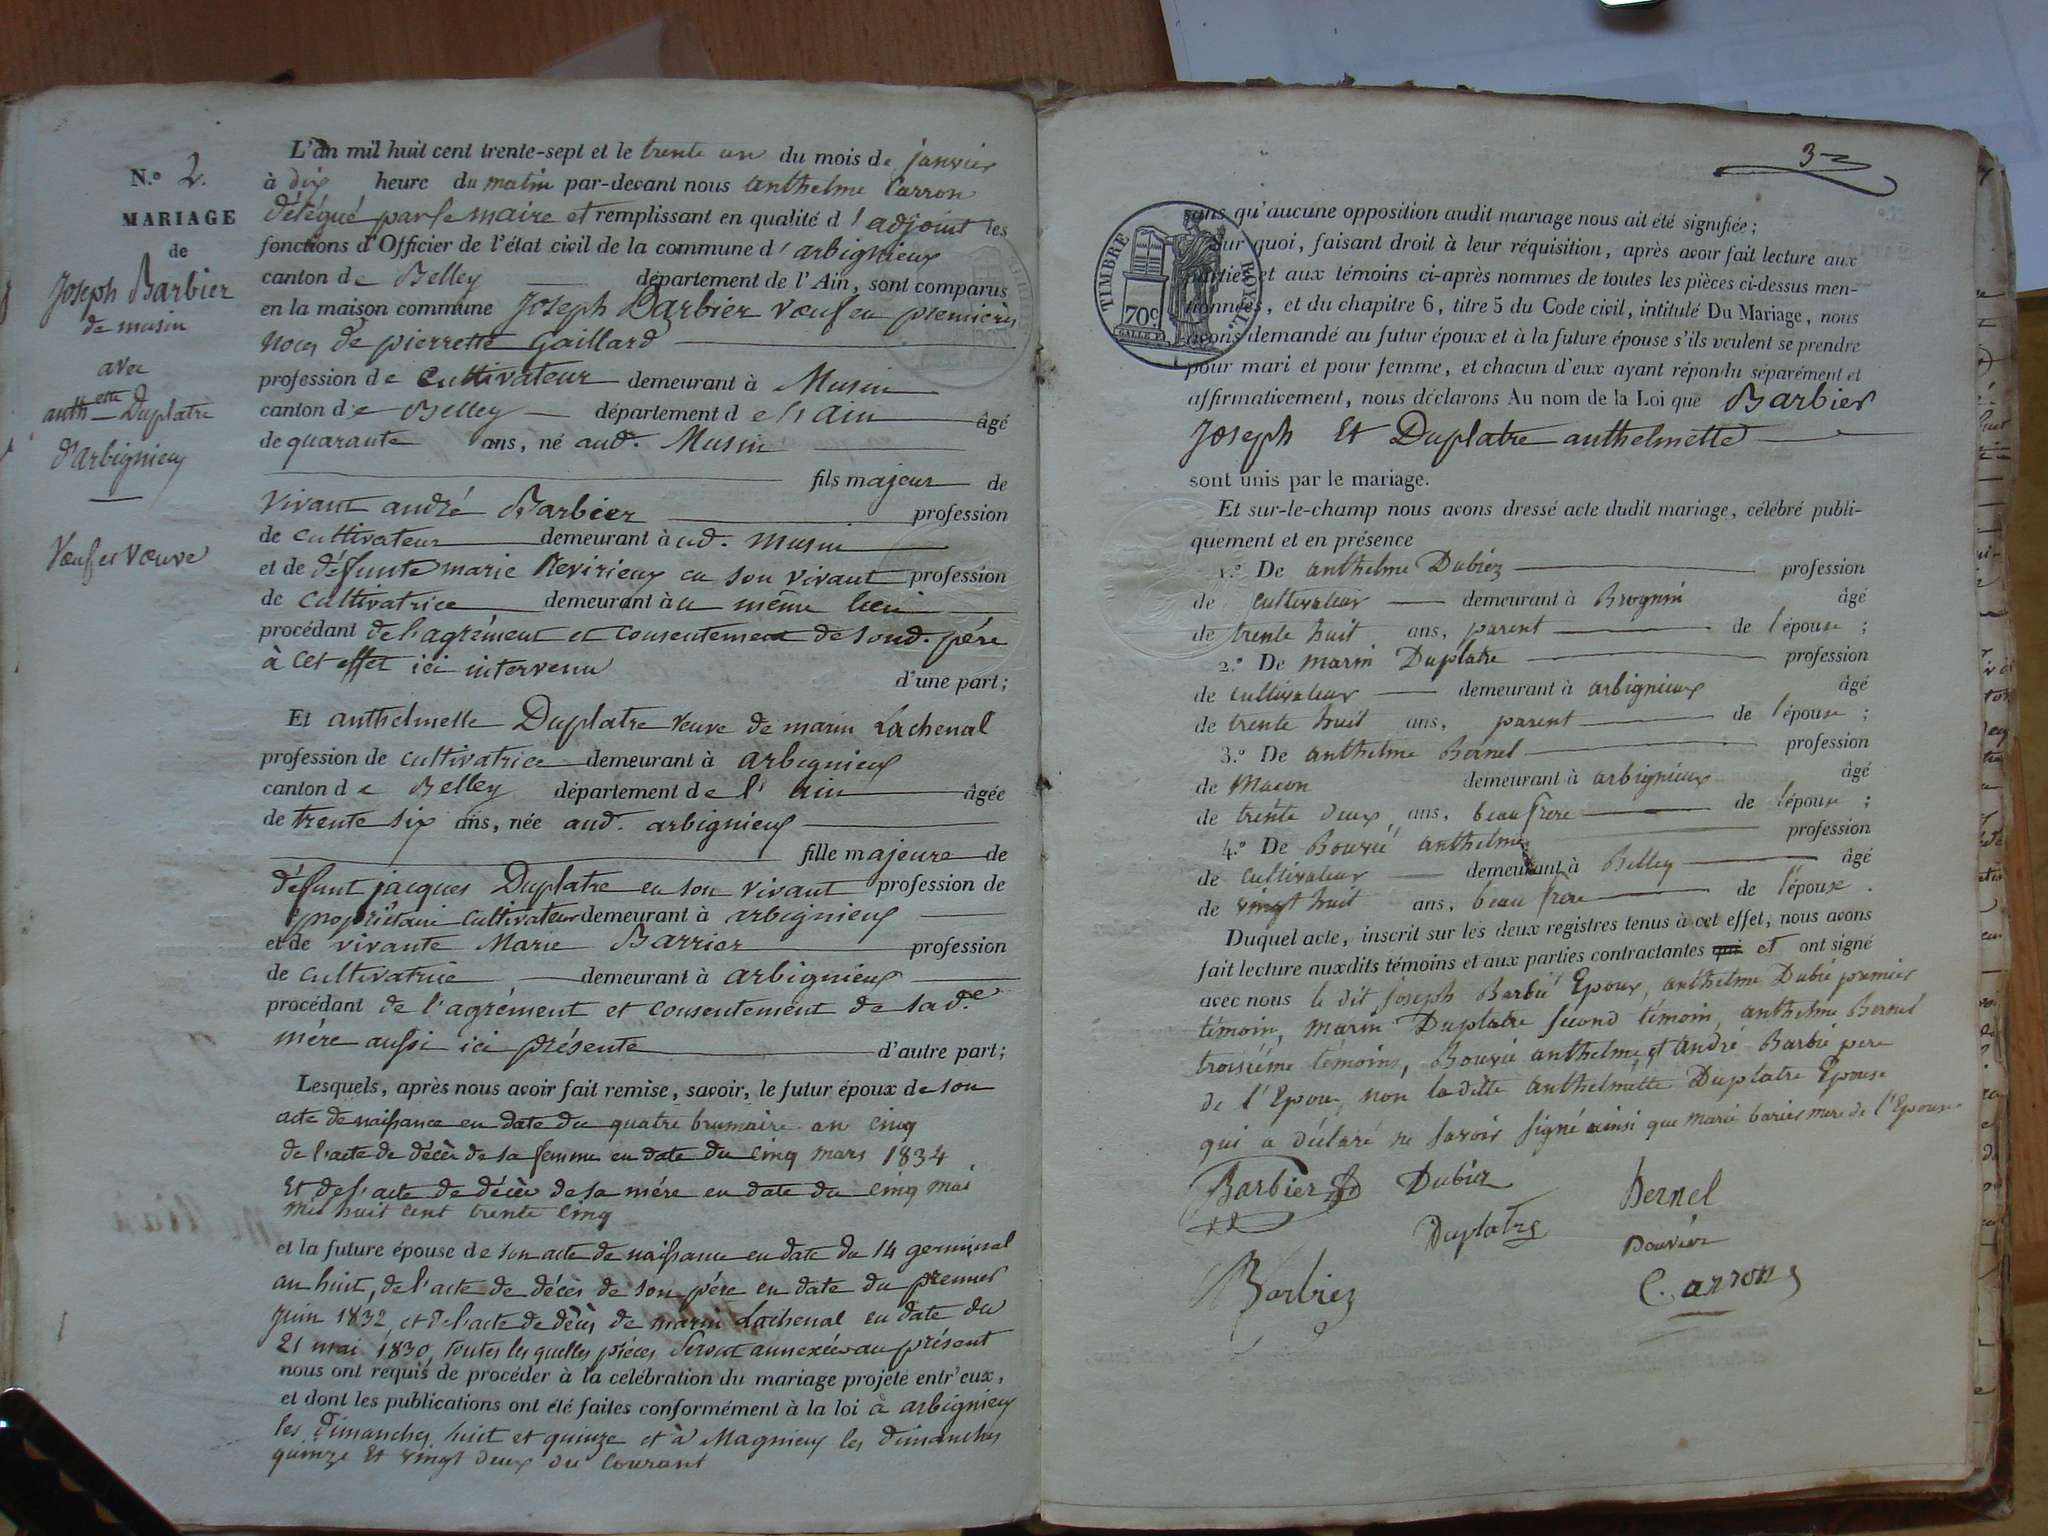 N.º 2.
MARIAGE
de
Joseph Barbier
de musin
avec
anth.ette Duplatre
d'Arbignieu
Veuf et Vœuve
L'an mil huit cent trente-sept et le trente un du mois de janvier
à dix heure du matin par-devant nous anthelme Carron
délégué par le maire et remplissant en qualité d'adjoint les
fonctions d'Officier de l'état civil de la commune d'arbignieux
canton de Belley département de l'Ain, sont comparus
en la maison commune Joseph Barbier Vœuf en premieres
noces de pierrette Gaillard
profession de cultivateur demeurant à Musin
canton de Belley département de l'ain âgé
de quarante ans, né aud. Musin
fils majeur de
Vivant andré Barbier profession
de cultivateur demeurant à ud. musin
et de défunte marie Revirieux en son vivant profession
de cultivatrice demeurant à u même lieu
procédant de l'agrément et consentement de sond. père
à cet effet ici intervenu d'une part;
Et anthelmette Duplatre veuve de marin Lachenal
profession de cultivatrice demeurant à arbignieux
canton de Belley département de l'ain âgée
de trente six ans, née aud. arbignieux
fille majeure de
défunt jacques Duplatre en son vivant profession de
propriétaire cultivateur demeurant à arbignieux
et de vivante Marie Barrier profession
de cultivatrice demeurant à arbignieux
procédant de l'agrément et consentement de sad.e
mère aussi ici présente d'autre part;
Lesquels, après nous avoir fait remise, savoir, le futur époux de son
acte de naissance en date du quatre brumaire an cinq
de l'acte de décès de sa femme en date du cinq mars 1834
Et de l'acte de décès de sa mère en date du cinq mai
mil huit cent trente cinq
et la future épouse de son acte de naissance en date du 14 germinal
an huit, de l'acte de décès de son père en date du premier
juin 1832 et de l'acte de décès de marin Lachenal en date du
21 mai 1830, toutes les quelles pièces seront annexées au présent
nous ont requis de procéder à la célébration du mariage projeté entr'eux,
et dont les publications ont été faites conformément à la loi à arbignieux
les Dimanches huit et quinze et à Magnieu les dimanches
quinze Et vingt deux du Courant
3
TIMBRE ROYAL.
70c
sans qu'aucune opposition audit mariage nous ait été signifiée;
Sur quoi, faisant droit à leur réquisition, après avoir fait lecture aux
parties et aux témoins ci-après nommes de toutes les pièces ci-dessus men-
tionnées, et du chapitre 6, titre 5 du Code civil, intitulé Du Mariage, nous
avons demandé au futur époux et à la future épouse s'ils veulent se prendre
pour mari et pour femme, et chacun d'eux ayant répondu séparément et
affirmativement, nous déclarons Au nom de la Loi que Barbier
Joseph Et Duplatre anthelmette
sont unis par le mariage.
Et sur-le-champ nous avons dressé acte dudit mariage, célébré publi-
quement et en présence
1.º De anthelme Dubiez profession
de cultivateur demeurant à Brognin âgé
de trente huit ans, parent de l'épouse;
2.º De marin Duplatre profession
de cultivateur demeurant à arbignieux âgé
de trente huit ans, parent de l'épouse;
3.º De anthelme Bernel profession
de Macon demeurant à arbignieux âgé
de trente deux ans, beau frere de l'épouse;
4.º De Bouvié anthelme profession
de cultivateur demeurant à Belley âgé
de vingt huit ans, beau frere de l'époux.
Duquel acte, inscrit sur les deux registres tenus à cet effet, nous avons
fait lecture auxdits témoins et aux parties contractantes qui et ont signé
avec nous le dit joseph Barbié Epoux, anthelme Dubié premier
témoin, marin Duplatre second témoin, anthelme Bernel
troisième témoins, Bouvié anthelme et André Barbié pere
de l'Epoux, non la ditte anthelmette Duplatre Epouse
qui a déclaré ne savoir signé ainsi que marie barier mere de l'Epouse
Barbier
Dubiez
Bernel
Duplatre
Bouvier
Barbiez
C. arron